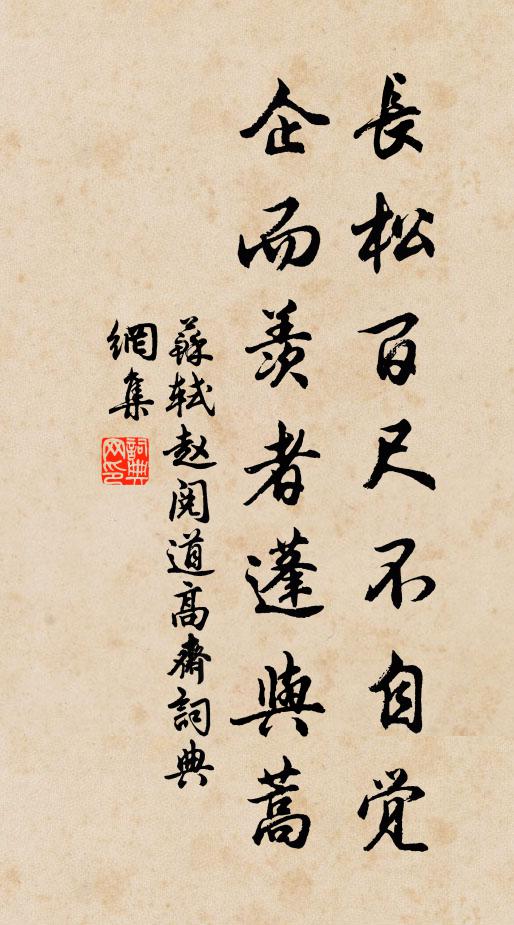 長松百尺不自觉
企而羨者蓬與蒿
蘇軾赵阅道高齋詞典
網集
詞典网印